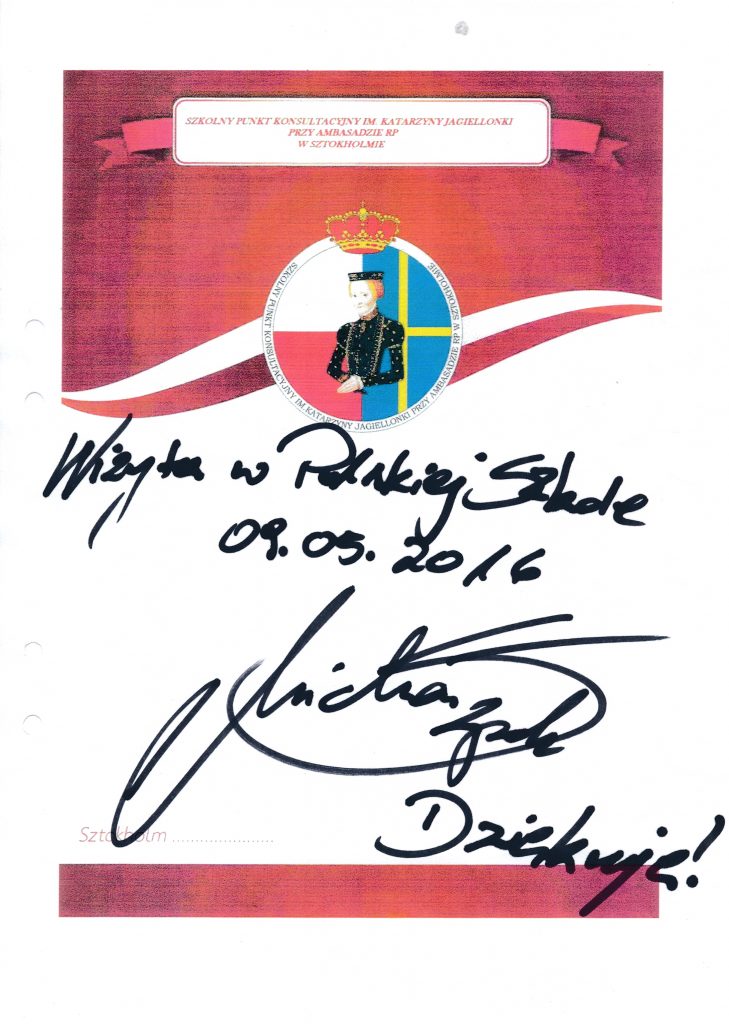 SZKOLNY PUNKT KONSULTACYJNY IM. KATARZYNY JAGIELLONKI
PRZY AMBASADZIE RP
W SZTOKHOLMIE
SZKOLNY PUNKT KONSULTACYJNY IM. KATARZYNY JAGIELLONKI PRZY AMBASADZIE RP W SZTOKHOLMIE
Wizyta w Polskiej Szkole
09.05.2016
Michał
Sztokholm ......................
Dziękuję!